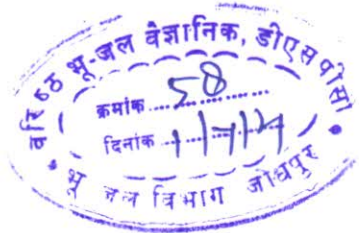 वरिष्ठ भू-जल वैज्ञानिक, डीएसपीसी
क्रमांक 58
दिनांक 1/7/14
भू जल विभाग जोधपुर